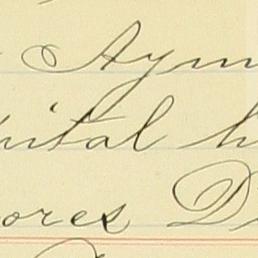 Aym
pital h
ores D